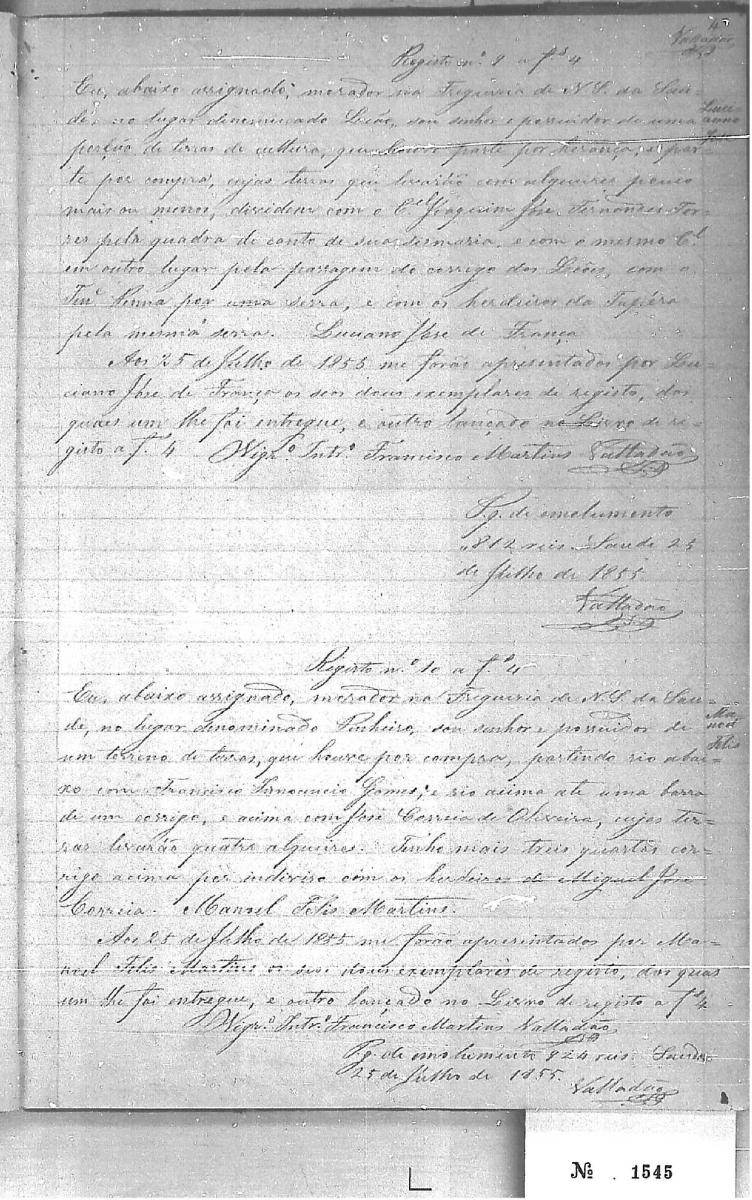 4
Valladão
Registo nº. 9 a fs 4
Eu, abaixo assignado, morador na Freguesia de N. S. da Sau=
de, no lugar denominado Leão, sou senhor e possuidor de uma
Luci=
anno
José
porção de terras de cultura, que houve parte por herança, e par=
te por compra, cujas terras que levarão cem alqueires pouco
mais ou menos, dividem com o Cel Joaquim José Fernandes Tor=
res pela quadra do canto de sua sesmaria, e com o mesmo Cel
em outro lugar pela passagem do corrigo dos Leões, com o
Tenº Penna por uma serra, e com os herdeiros da Tapéra
pela mesma serra. Luciano José de França
Aos 25 de Julho de 1855 me forão apresentados por Lu=
ciano José de França os seos dous exemplares de registo, dos
quaes um lhe foi entregue, e outro lançado no Livro de re=
gisto a f. 4 Vigrº Intrº Francisco Martins Valladão
Pg. de emolumento
812 reis. Saude 25
de Julho de 1855
Valladão
Registo nº 10 a fs 4
Eu, abaixo assignado, morador na Freguesia de N. S. da Sau=
de, no lugar denominado Pinheiro, sou senhor e possuidor de
Ma=
noel
Felis
um terreno de terras, que houve por compra, partindo rio abai=
xo com Francisco Innocencio Gomes, e rio acima até uma barra
de um corrigo, e acima com José Correia de Oliveira, cujas ter=
ras levarão quatro alqueires. Tenho mais tres quartas cor=
rigo acima por indiviso com os herdeiros de Miguel José
Correia. Manoel Felis Martins.
Aos 25 de Julho de 1855 me forão apresentados por Ma=
noel Felis Martins os seos dous exemplares de registo, dos quaes
um lhe foi entregue, e outro lançado no Livro de registo a fs 4
Vigrº Intrº Francisco Martins Valladão
Pg. de emolumento 824 reis. Saude
25 de Julho de 1855.
Valladão
Nº . 1545